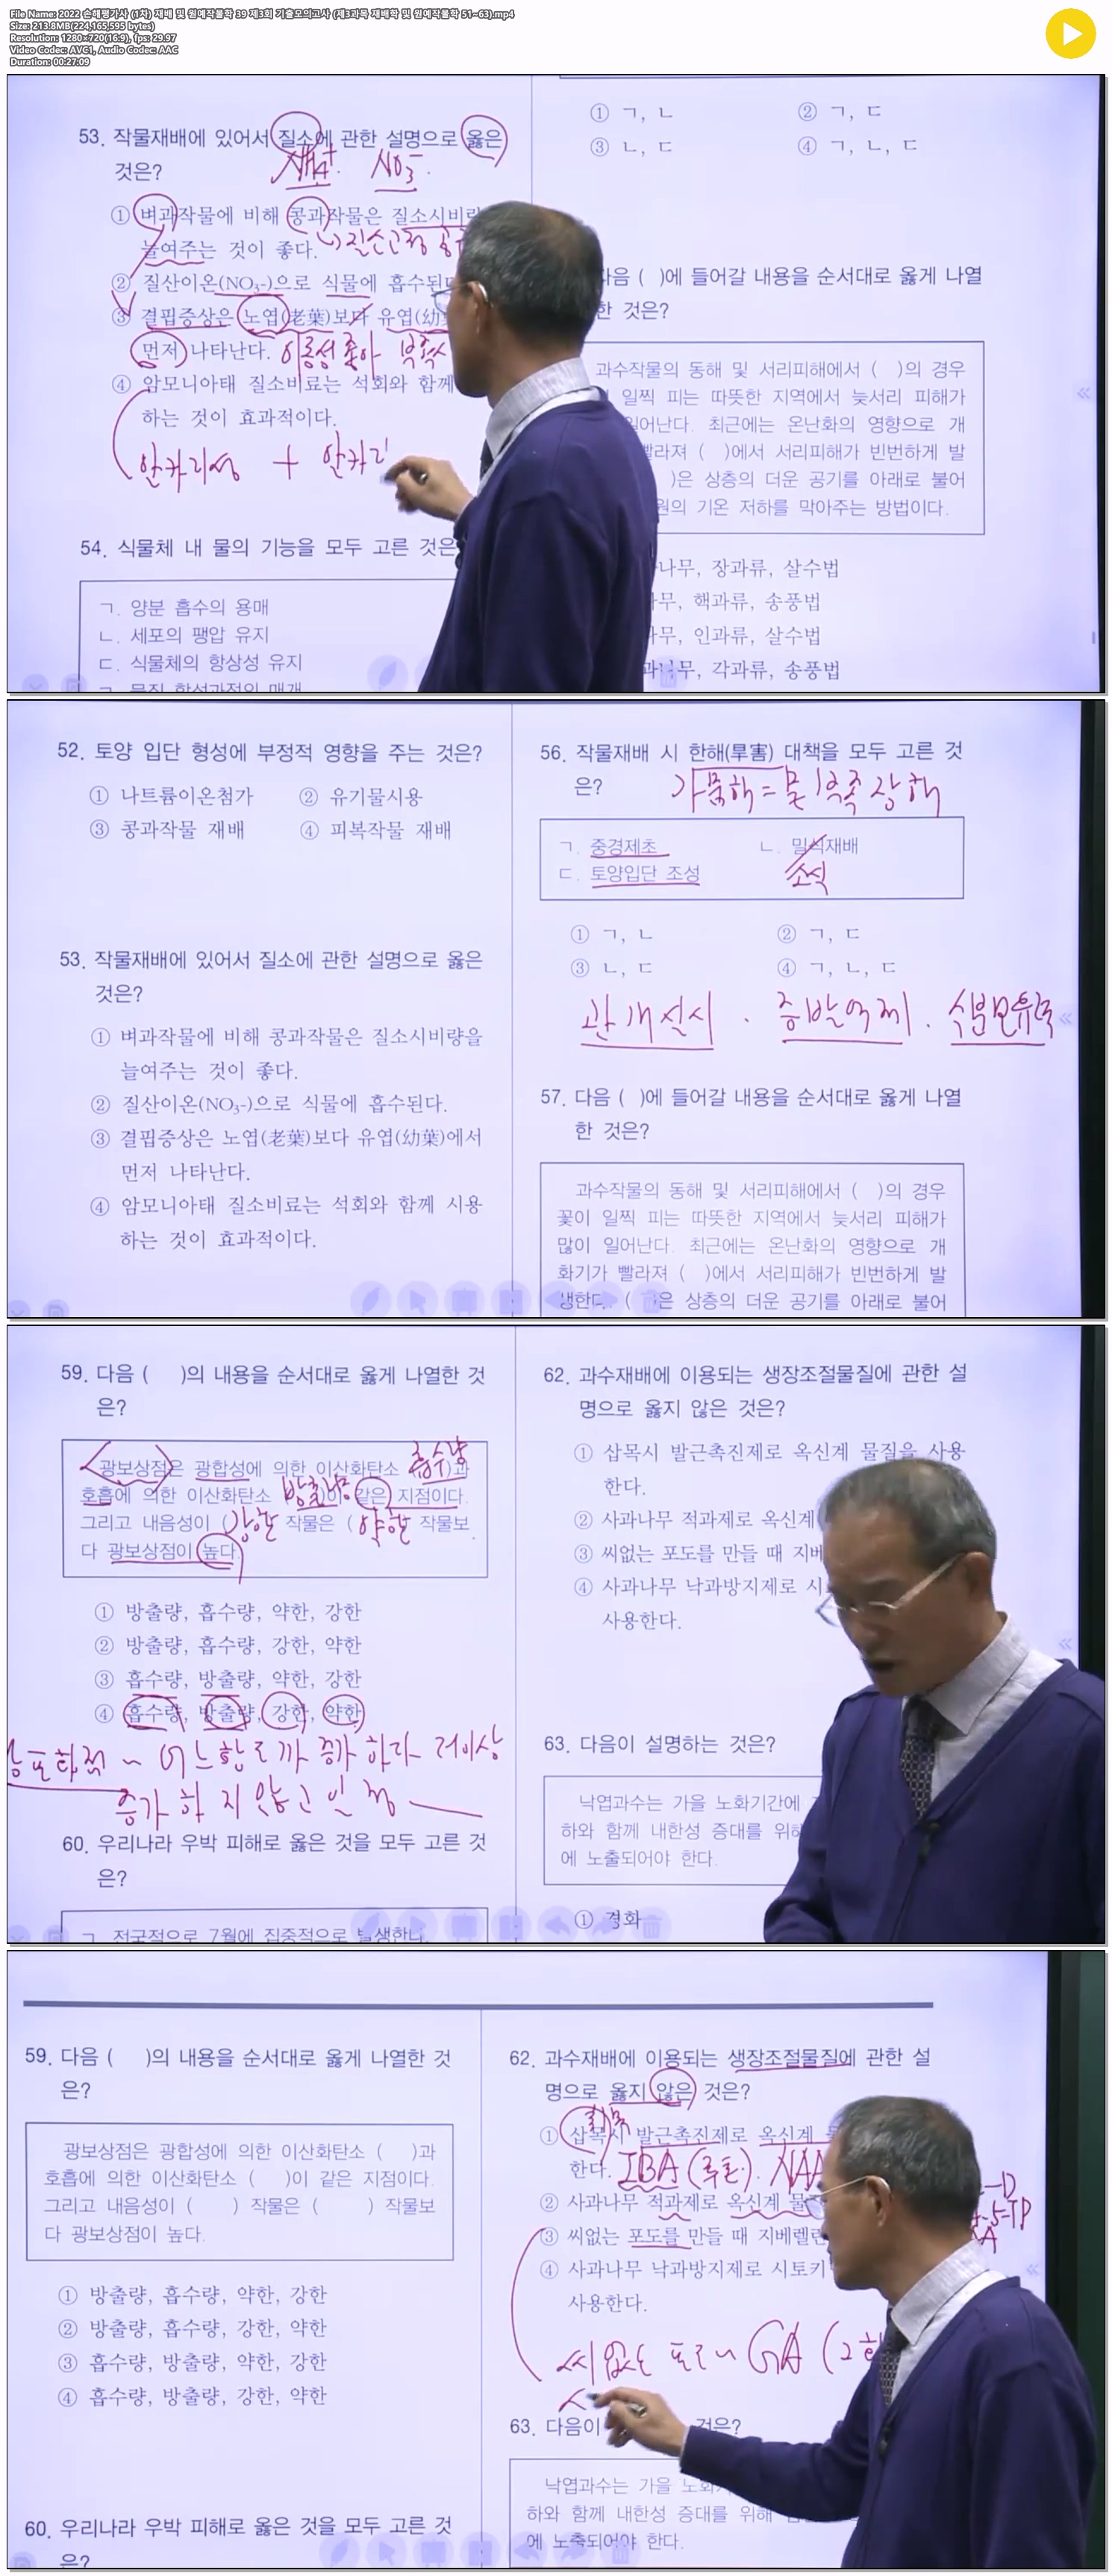 File Name: 2022 손해평가사 (1차) 재배 및 원예작물학 39 제3회 기출모의고사 (제3과목 재배학 및 원예작물학 51~63).mp4
Size: 213.8MB(224,165,595 bytes)
Resolution: 1280×720(16:9), fps: 29.97
Video Codec: AVC1, Audio Codec: AAC
Duration: 00:27:09
53. 작물재배에 있어서 질소에 관한 설명으로 옳은
것은?
NH4+ NO3-
① 벼과작물에 비해 콩과작물은 질소시비량
늘여주는 것이 좋다.
② 질산이온(NO3-)으로 식물에 흡수된다
③ 결핍증상은 노엽(老葉)보다 유엽(幼
먼저 나타난다. 이동성 좋아
④ 암모니아태 질소비료는 석회와 함께
하는 것이 효과적이다.
알카리성 + 알카리
54. 식물체 내 물의 기능을 모두 고른 것은
ㄱ. 양분 흡수의 용매
ㄴ. 세포의 팽압 유지
ㄷ. 식물체의 항상성 유지
ㄹ. 물질 합성과정의 매개
① ㄱ, ㄴ ② ㄱ, ㄷ
③ ㄴ, ㄷ ④ ㄱ, ㄴ, ㄷ
다음 ( )에 들어갈 내용을 순서대로 옳게 나열
한 것은?
과수작물의 동해 및 서리피해에서 ( )의 경우
일찍 피는 따뜻한 지역에서 늦서리 피해가
일어난다. 최근에는 온난화의 영향으로 개
빨라져 ( )에서 서리피해가 빈번하게 발
)은 상층의 더운 공기를 아래로 불어
원의 기온 저하를 막아주는 방법이다.
나무, 장과류, 살수법
무, 핵과류, 송풍법
무, 인과류, 살수법
과나무, 각과류, 송풍법
52. 토양 입단 형성에 부정적 영향을 주는 것은?
① 나트륨이온첨가 ② 유기물시용
③ 콩과작물 재배 ④ 피복작물 재배
53. 작물재배에 있어서 질소에 관한 설명으로 옳은
것은?
① 벼과작물에 비해 콩과작물은 질소시비량을
늘여주는 것이 좋다.
② 질산이온(NO3-)으로 식물에 흡수된다.
③ 결핍증상은 노엽(老葉)보다 유엽(幼葉)에서
먼저 나타난다.
④ 암모니아태 질소비료는 석회와 함께 시용
하는 것이 효과적이다.
56. 작물재배 시 한해(旱害) 대책을 모두 고른 것
은?
가뭄해 = 물 부족 장해
ㄱ. 중경제초 ㄴ. 밀식재배
ㄷ. 토양입단 조성 소식
① ㄱ, ㄴ ② ㄱ, ㄷ
③ ㄴ, ㄷ ④ ㄱ, ㄴ, ㄷ
관개실시 . 증발억제 .
57. 다음 ( )에 들어갈 내용을 순서대로 옳게 나열
한 것은?
과수작물의 동해 및 서리피해에서 ( )의 경우
꽃이 일찍 피는 따뜻한 지역에서 늦서리 피해가
많이 일어난다. 최근에는 온난화의 영향으로 개
화기가 빨라져 ( )에서 서리피해가 빈번하게 발
생한다. ( )은 상층의 더운 공기를 아래로 불어
59. 다음 ( )의 내용을 순서대로 옳게 나열한 것
은?
광보상점은 광합성에 의한 이산화탄소 흡수량)과
호흡에 의한 이산화탄소 방출량)이 같은 지점이다.
그리고 내음성이 (강한 작물은 (약한 작물보
다 광보상점이 높다.
① 방출량, 흡수량, 약한, 강한
② 방출량, 흡수량, 강한, 약한
③ 흡수량, 방출량, 약한, 강한
④ 흡수량, 방출량, 강한, 약한
광포화점 ~ 어느 한도까지 증가하다 더이상
증가하지 않고
60. 우리나라 우박 피해로 옳은 것을 모두 고른 것
은?
ㄱ. 전국적으로 7월에 집중적으로 발생한다.
62. 과수재배에 이용되는 생장조절물질에 관한 설
명으로 옳지 않은 것은?
① 삽목시 발근촉진제로 옥신계 물질을 사용
한다.
② 사과나무 적과제로 옥신계
③ 씨없는 포도를 만들 때 지베
④ 사과나무 낙과방지제로 시
사용한다.
63. 다음이 설명하는 것은?
낙엽과수는 가을 노화기간에
하와 함께 내한성 증대를 위해
에 노출되어야 한다.
① 경화
59. 다음 ( )의 내용을 순서대로 옳게 나열한 것
은?
광보상점은 광합성에 의한 이산화탄소 ( )과
호흡에 의한 이산화탄소 ( )이 같은 지점이다.
그리고 내음성이 ( ) 작물은 ( ) 작물보
다 광보상점이 높다.
① 방출량, 흡수량, 약한, 강한
② 방출량, 흡수량, 강한, 약한
③ 흡수량, 방출량, 약한, 강한
④ 흡수량, 방출량, 강한, 약한
60. 우리나라 우박 피해로 옳은 것을 모두 고른 것
은?
62. 과수재배에 이용되는 생장조절물질에 관한 설
명으로 옳지 않은 것은?
① 삽목시 발근촉진제로 옥신계
한다. IBA (루톤). NAA
② 사과나무 적과제로 옥신계 물
③ 씨없는 포도를 만들 때 지베렐린
④ 사과나무 낙과방지제로 시토키
사용한다.
씨없는 포도 GA (2회
63. 다음이 것은?
낙엽과수는 가을 노화
하와 함께 내한성 증대를 위해
에 노출되어야 한다.